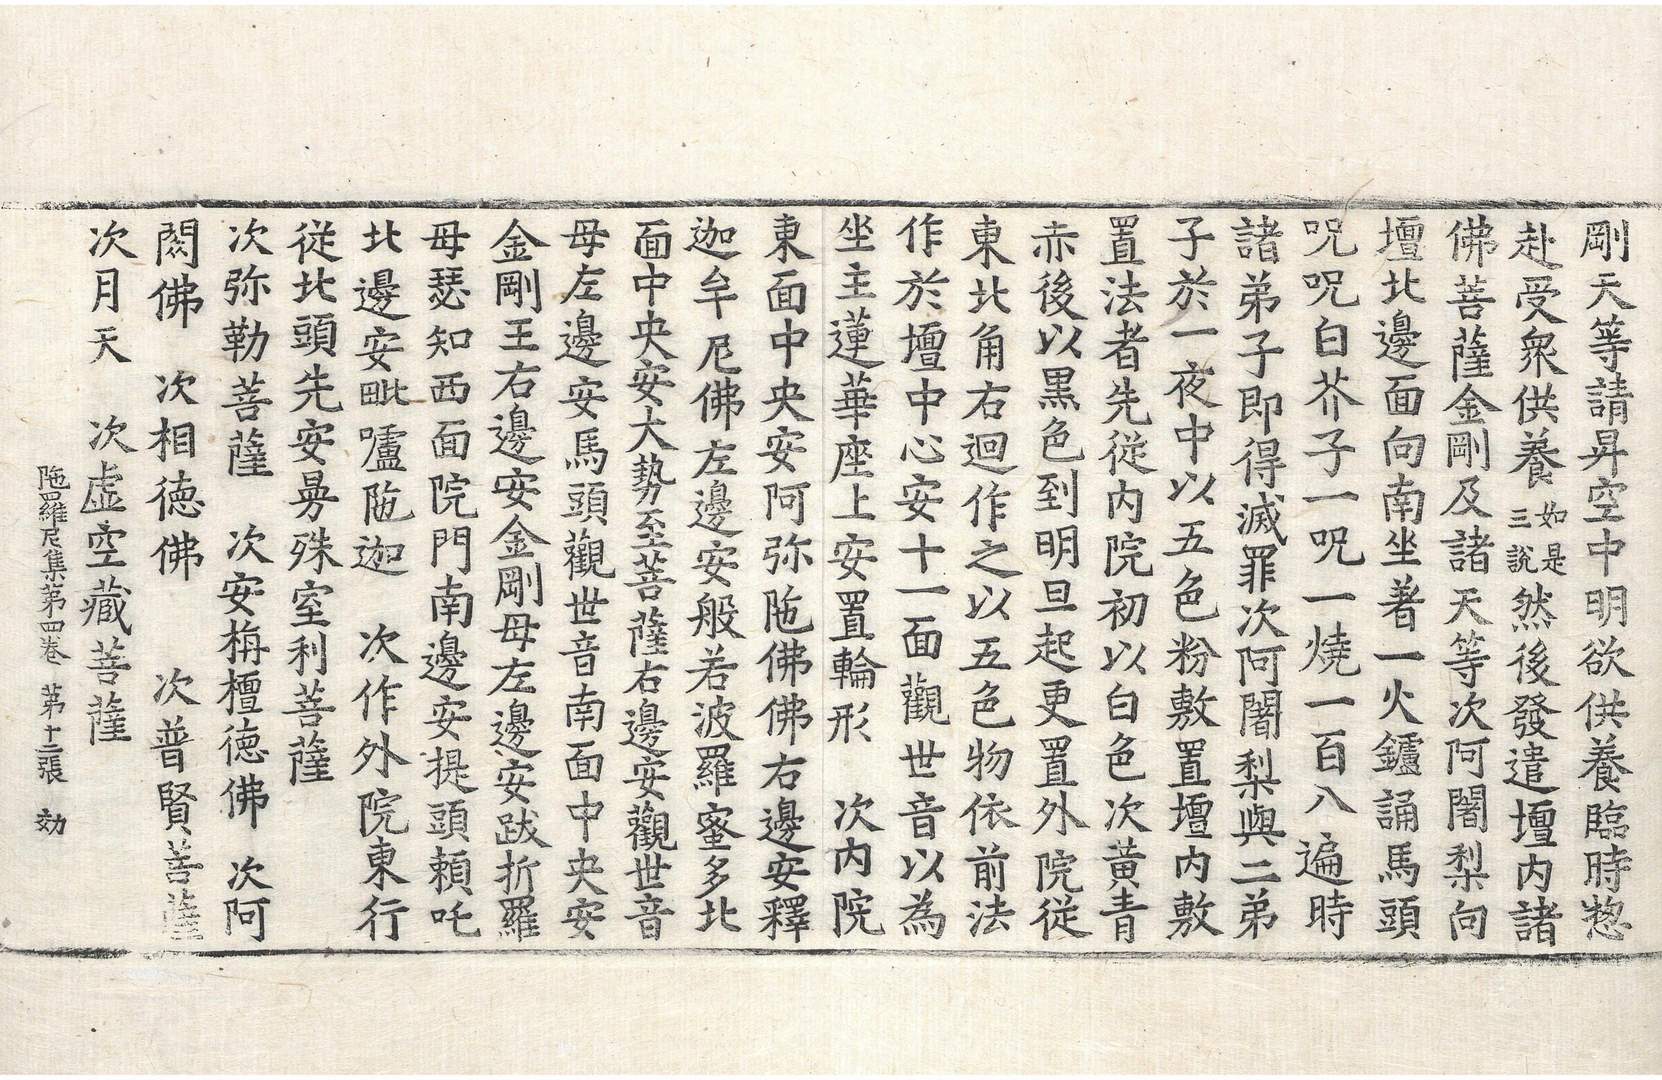 剛天等請昇空中明欲供養臨時惣
赴受衆供養如是三說然後發遣壇內諸
佛菩薩金剛及諸天等次阿闍梨向
壇北邊面向南坐著一火鑪誦馬頭
呪呪白芥子一呪一燒一百八遍時
諸弟子即得滅罪次阿闍梨與二弟
子於一夜中以五色粉敷置壇內敷
置法者先從內院初以白色次黃青
赤後以黑色到明旦起更置外院從
東北角右迴作之以五色物依前法
作於壇中心安十一面觀世音以為
坐主蓮華座上安置輪形　次內院
東面中央安阿弥陁佛佛右邊安釋
迦牟尼佛左邊安般若波羅蜜多北
面中央安大勢至菩薩右邊安觀世音
母左邊安馬頭觀世音南面中央安
金剛王右邊安金剛母左邊安跋折羅
母瑟知西面院門南邊安提頭賴吒
北邊安毗嚧陁迦　次作外院東行
從北頭先安曼殊室利菩薩
次弥勒菩薩　次安栴檀德佛　次阿
閦佛　次相德佛　次普賢菩薩
次月天　次虛空藏菩薩
陁羅尼集第四卷　第十二張　効